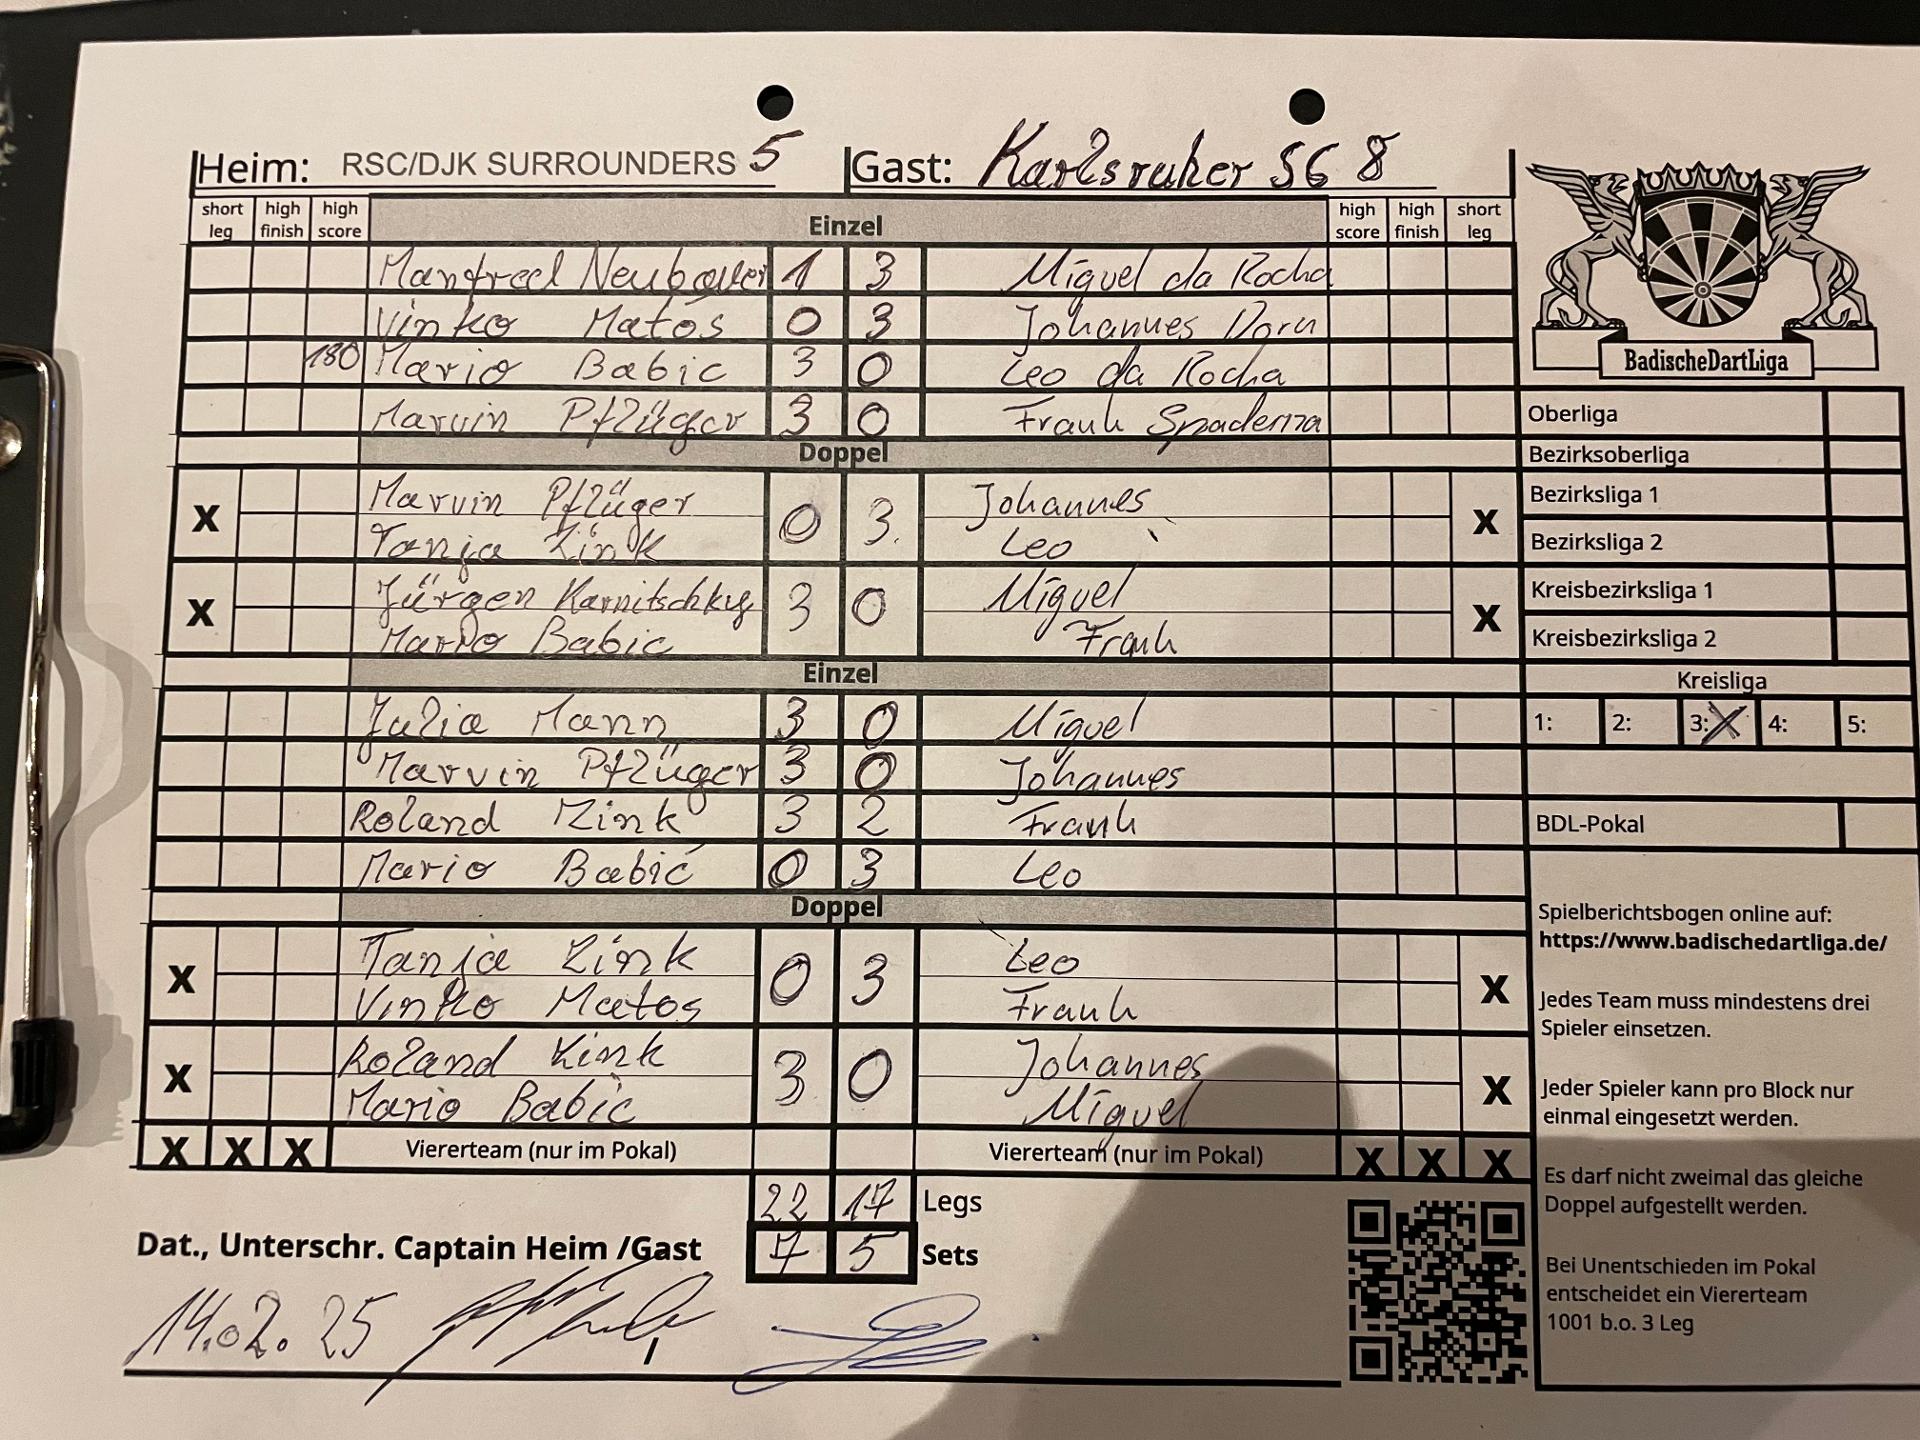 Heim: RSC/DJK SURROUNDERS 5 Gast: Karlsruher SG 8
short leg high finish high score Einzel high score high finish short leg
Manfred Neubauer 1 3 Miguel da Rocha
Vinko Matos 0 3 Johannes Dorn
180 Mario Babic 3 0 Leo da Rocha
Marvin Pflüger 3 0 Frank Spadenna
Doppel
X Marvin Pflüger 0 3 Johannes X
Tanja Zink Leo
X Jürgen Karnitschky 3 0 Miguel X
Mario Babic Frank
Einzel
Julia Mann 3 0 Miguel
Marvin Pflüger 3 0 Johannes
Roland Zink 3 2 Frank
Mario Babić 0 3 Leo
Doppel
X Tanja Zink 0 3 Leo X
Vinko Matos Frank
X Roland Zink 3 0 Johannes X
Mario Babic Miguel
X X X Viererteam (nur im Pokal) Viererteam (nur im Pokal) X X X
22 17 Legs
7 5 Sets
Dat., Unterschr. Captain Heim /Gast
14.02.25 /
BadischeDartLiga
Oberliga
Bezirksoberliga
Bezirksliga 1
Bezirksliga 2
Kreisbezirksliga 1
Kreisbezirksliga 2
Kreisliga
1: 2: 3: X 4: 5:
BDL-Pokal
Spielberichtsbogen online auf:
https://www.badischedartliga.de/
Jedes Team muss mindestens drei
Spieler einsetzen.
Jeder Spieler kann pro Block nur
einmal eingesetzt werden.
Es darf nicht zweimal das gleiche
Doppel aufgestellt werden.
Bei Unentschieden im Pokal
entscheidet ein Viererteam
1001 b.o. 3 Leg